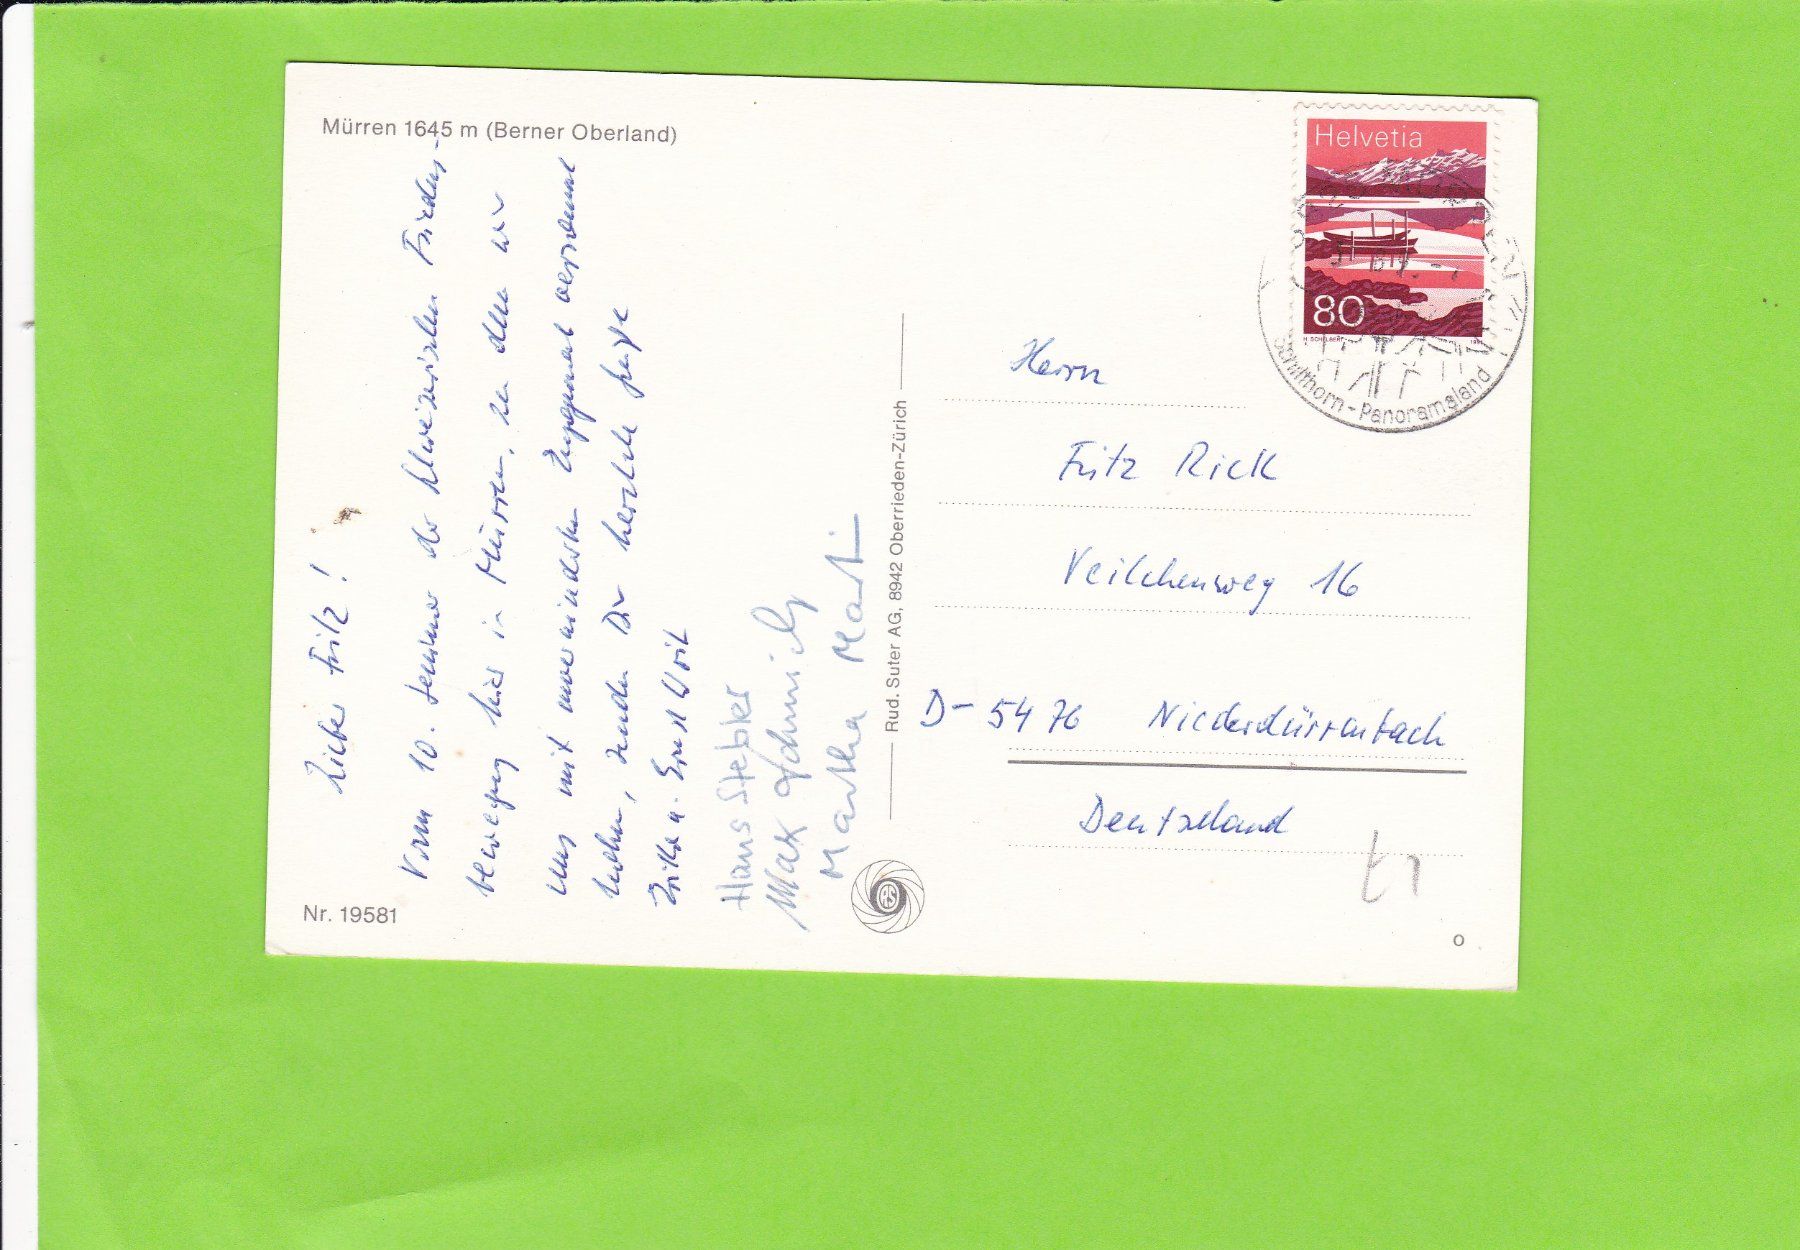 Mürren 1645 m (Berner Oberland)
Lieber Fritz!
Vom 10. Seminar der schweizerischen Friedens-
bewegung hier in Mürren, zu dem wir
uns mit unverminderten Engagement versammelt
haben, senden Dir herzliche Grüße
Ernst Voit
Hans Stebler
Max Schmid
Martha Marti
Nr. 19581
Rud. Suter AG, 8942 Oberrieden-Zürich
RS
Helvetia
80
H. SCHELBERT
Schilthorn-Panoramaland
Herrn
Fritz Rick
Veilchenweg 16
D-5476 Niederdürenbach
Deutschland
o